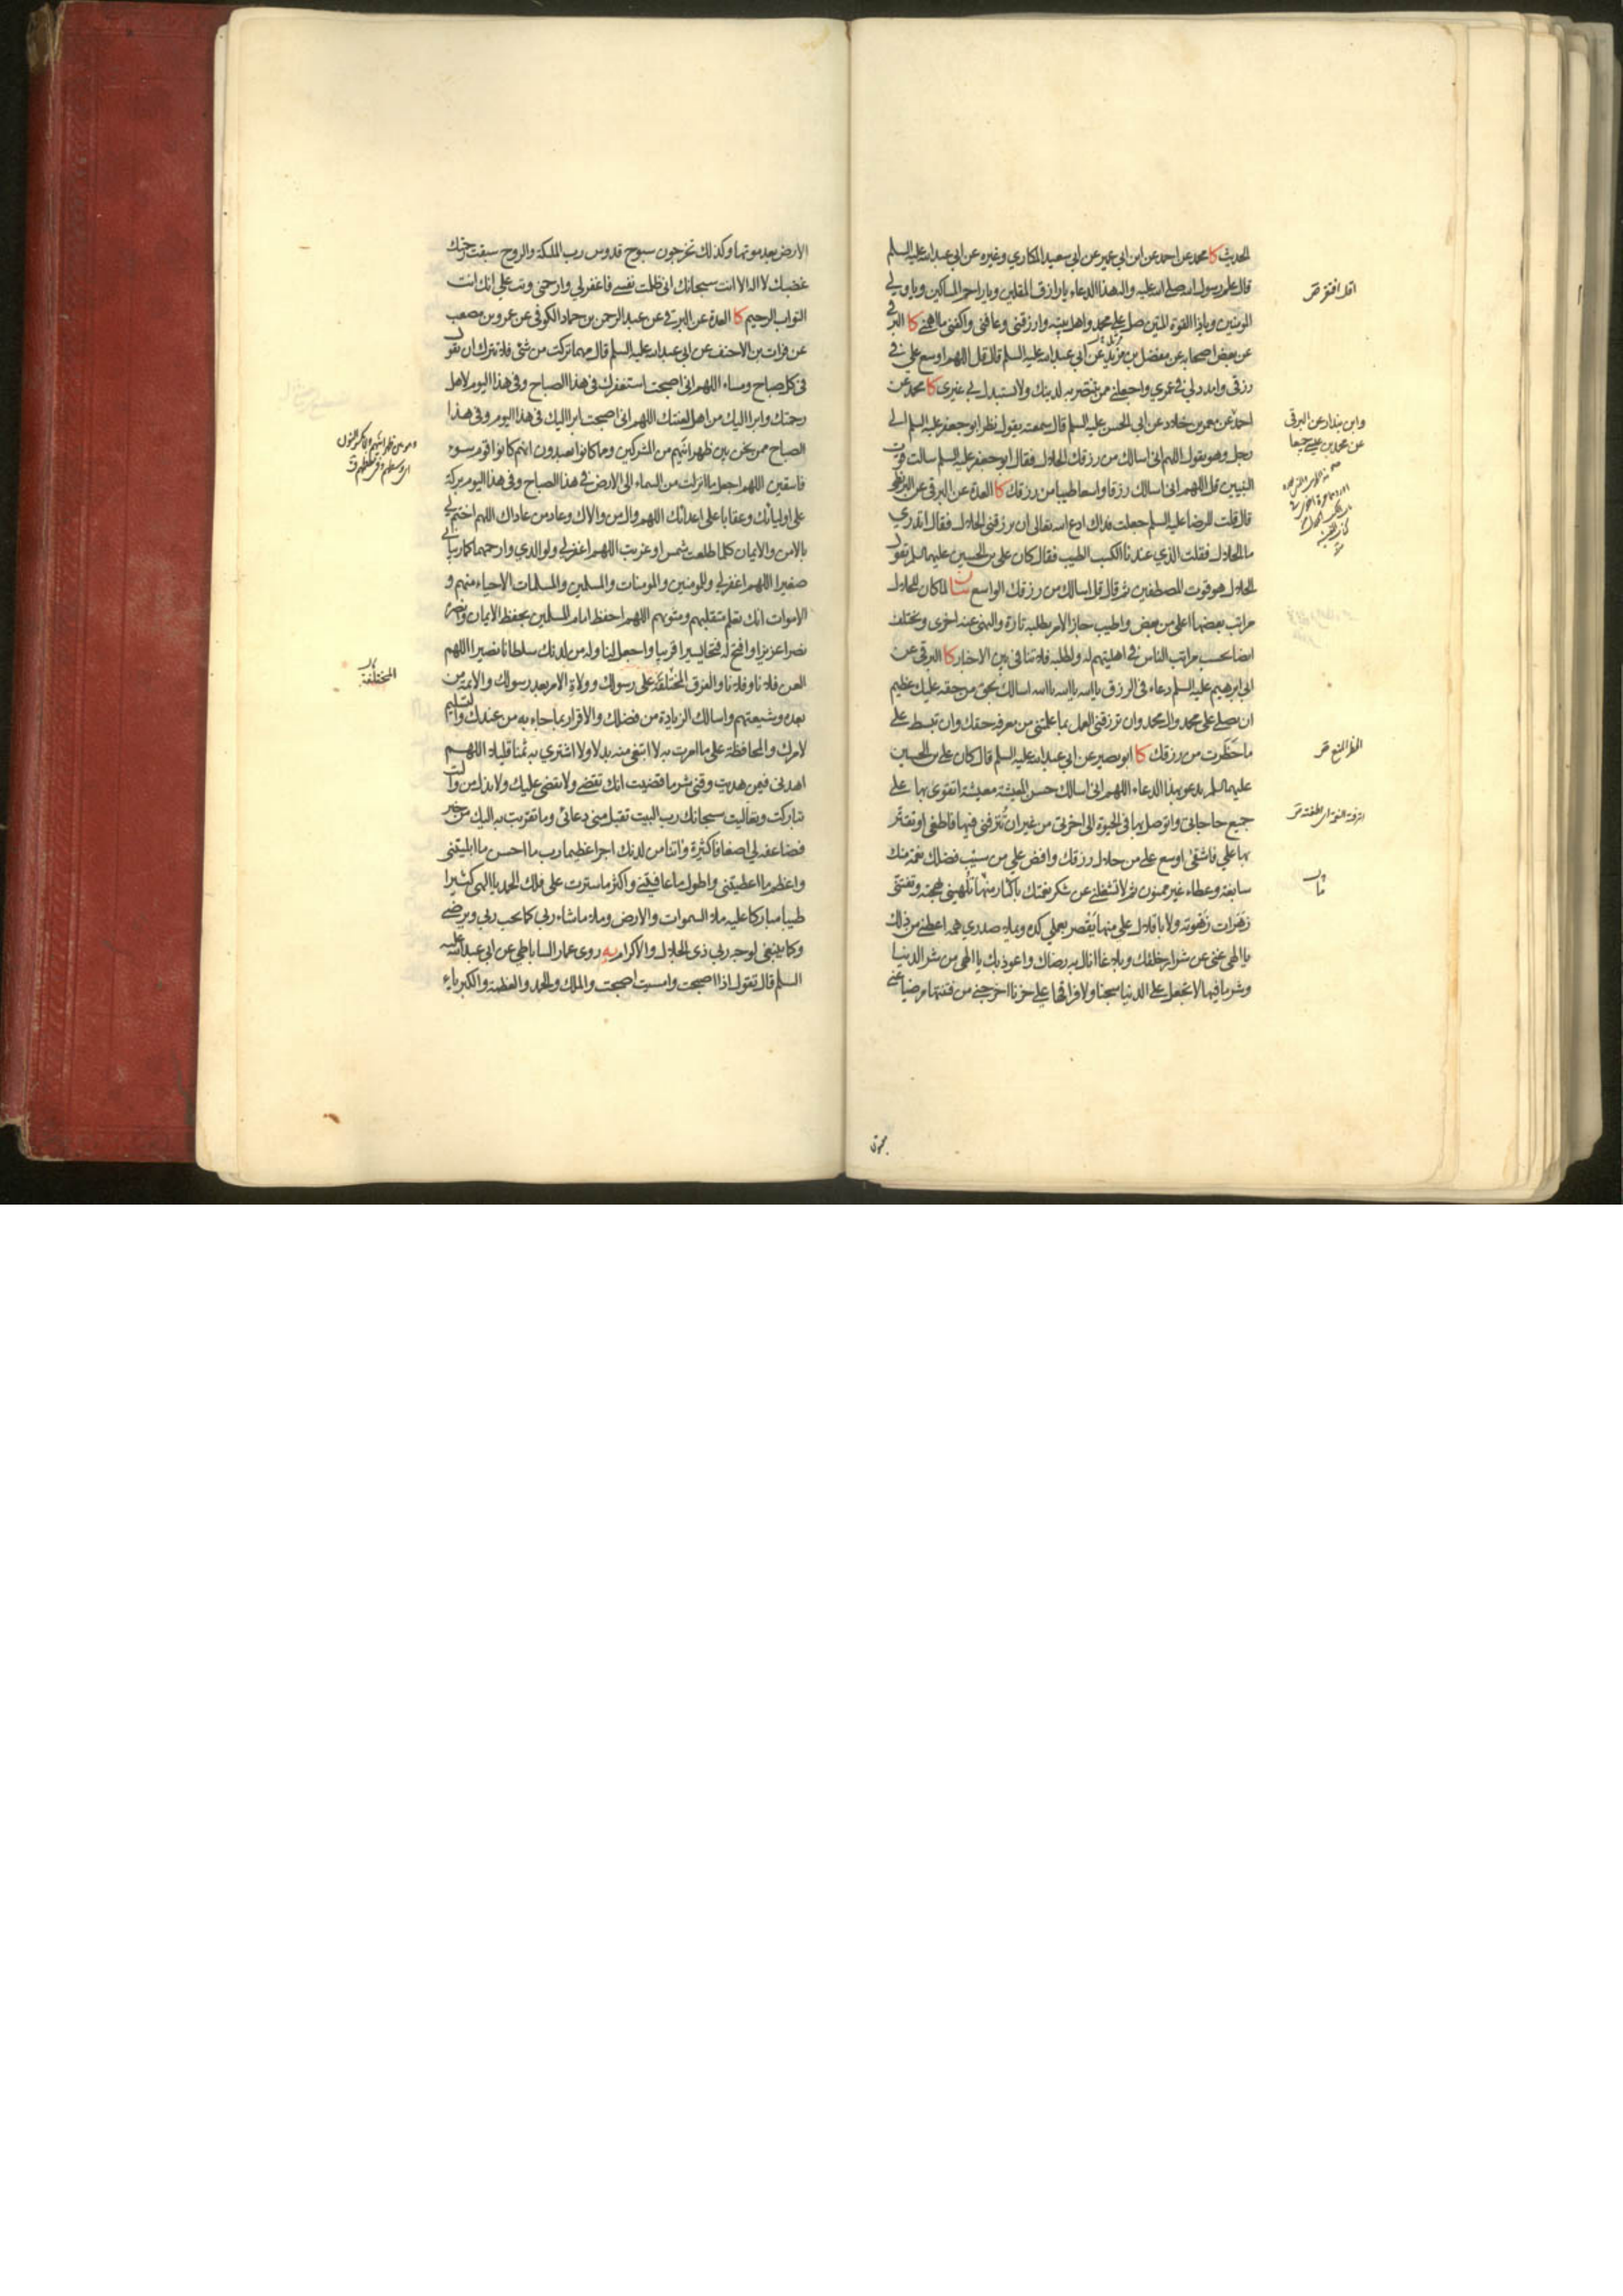 الحديث كا محمد عن احمد عن ابن ابي عمير عن ابي سعيد المكاري وغيره عن ابي عبدالله عليه السلم
قال علم رسول الله صلى الله عليه واله هذا الدعاء يا رازق المقلين ويا راحم المساكين ويا ولي
المومنين ويا ذا القوة المتين صل على محمد واهل بيته وارزقني وعافني واكفني ما اهمني كا البرقي
عن بعض اصحابه عن مفضل بن مزيد عن ابي عبدالله عليه السلم قال قل اللهم اوسع علي في
رزقي وامدد لي في عمري واجعلني ممن تنتصر به لدينك ولا تستبدل بي غيري كا محمد عن
احمد عن معمر بن خلاد عن ابي الحسن عليه السلم قال سمعته يقول نظر ابو جعفر عليه السلم الى
رجل وهو يقول اللهم اني اسالك من رزقك الحلال فقال ابو جعفر عليه السلم سالت قوت
النبيين قل اللهم اني اسالك رزقا واسعا طيبا من رزقك كا العدة عن البرقي عن البزنطي
قال قلت للرضا عليه السلم جعلت فداك ادع الله تعالى ان يرزقني الحلال فقال اتدري
ما الحلال فقلت الذي عندنا الكسب الطيب فقال كان علي بن الحسين عليهما السلم يقول
الحلال هو قوت المصطفين ثم قال قل اسالك من رزقك الواسع بيان لما كان للحلال
مراتب بعضها اعلى من بعض واطيب جاز الامر بطلبه تارة والنهي عنه اخرى ويختلف
ايضا بحسب مراتب الناس في اهليتهم له ولطلبه فلا تنافي بين الاخبار كا البرقي عن
ابي ابرهيم عليه السلم دعاء في الرزق يا الله يا الله يا الله اسالك بحق من حقه عليك عظيم
ان تصلي على محمد وال محمد وان ترزقني العمل بما علمتني من معرفة حقك وان تبسط علي
ما حظرت من رزقك كا ابو بصير عن ابي عبدالله عليه السلم قال كان علي بن الحسين
عليهما السلم يدعو بهذا الدعاء اللهم اني اسالك حسن المعيشة معيشة اتقوى بها على
جميع حاجاتي واتوصل بها في الحيوة الى اخرتي من غير ان تترفني فيها فاطغى او تقتر
بها علي فاشقى اوسع علي من حلال رزقك وافض علي من سيب فضلك نعمة منك
سابغة وعطاء غير ممنون ثم لا تشغلني عن شكر نعمتك باكثار منها تلهيني بهجته وتفتني
زهرات زهوته ولا باقلال علي منها يقصر بعملي كده ويملا صدري همه اعطني من ذلك
يا الهي غنى عن شرار خلقك وبلاغا انال به رضاك واعوذ بك يا الهي من شر الدنيا
وشر ما فيها لا تجعل علي الدنيا سجنا ولا فراقها علي حزنا اخرجني من فتنتها مرضيا عني
اقل افتقر
وابن بندار عن البرقي
عن محمد بن عيسى جميعا
الحظر المنع
اترفته النعمة اي اطغته
الارض بعد موتها وكذلك تخرجون سبوح قدوس رب الملئكة والروح سبقت رحمتك
غضبك لا اله الا انت سبحانك اني ظلمت نفسي فاغفر لي وارحمني وتب علي انك انت
التواب الرحيم كا العدة عن البرقي عن عبد الرحمن بن حماد الكوفي عن عمرو بن مصعب
عن فرات بن الاحنف عن ابي عبدالله عليه السلم قال مهما تركت من شئ فلا تترك ان تقول
في كل صباح ومساء اللهم اني اصبحت استغفرك في هذا الصباح وفي هذا اليوم لاهل
رحمتك وابرا اليك من اهل لعنتك اللهم اني اصبحت ابرا اليك في هذا اليوم وفي هذا
الصباح ممن نحن بين ظهرانيهم من المشركين وما كانوا يعبدون انهم كانوا قوم سوء
فاسقين اللهم اجعل ما انزلت من السماء الى الارض في هذا الصباح وفي هذا اليوم بركة
على اوليائك وعقابا على اعدائك اللهم وال من والاك وعاد من عاداك اللهم اختم لي
بالامن والايمان كلما طلعت شمس او غربت اللهم اغفر لي ولوالدي وارحمهما كما ربياني
صغيرا اللهم اغفر لي وللمومنين والمومنات والمسلمين والمسلمات الاحياء منهم و
الاموات انك تعلم متقلبهم ومثويهم اللهم احفظ امام المسلمين بحفظ الايمان وانصره
نصرا عزيزا وافتح له فتحا يسيرا قريبا واجعل لنا وله من لدنك سلطانا نصيرا اللهم
العن فلانا وفلانا والفرق المختلفة على رسولك وولاة الامر بعد رسولك والائمة من
بعده وشيعتهم واسالك الزيادة من فضلك والاقرار بما جاء به من عندك والتسليم
لامرك والمحافظة على ما امرت به لا ابتغي منه بدلا ولا اشتري به ثمنا قليلا اللهم
اهدني فيمن هديت وقني شر ما قضيت انك تقضي ولا يقضى عليك ولا يذل من واليت
تباركت وتعاليت سبحانك رب البيت تقبل مني دعائي وما تقربت به اليك من خير
فضاعفه لي اضعافا كثيرة واتنا من لدنك اجرا عظيما رب ما احسن ما ابليتني
واعظم ما اعطيتني واطول ما عافيتني واكثر ما سترت علي فلك الحمد يا الهي كثيرا
طيبا مباركا عليه ملا السموات والارض وملا ما شاء ربي كما يحب ربي ويرضى
وكما ينبغي لوجه ربي ذي الجلال والاكرام يه روى عمار الساباطي عن ابي عبدالله عليه
السلم قال تقول اذا اصبحت وامسيت اصبحت والملك والحمد والعظمة والكبرياء
المختلفة